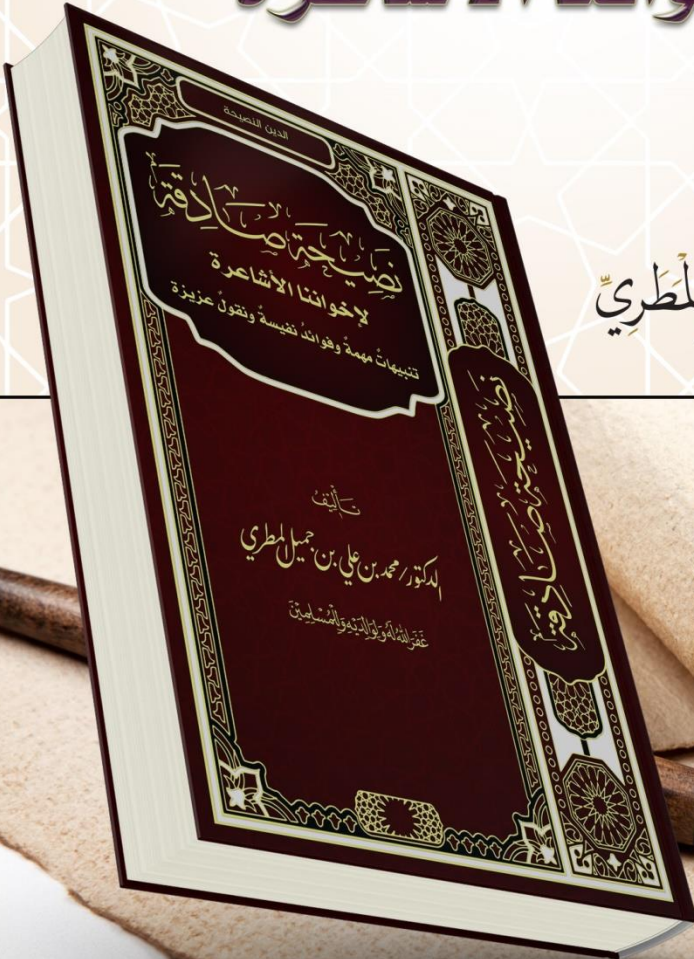 الأشاعرة
المطري
الدين النصيحة
نصيحة صادقة
لإخواننا الأشاعرة
تنبيهاتٌ مهمةٌ وفوائدُ نفيسةٌ ونقولٌ عزيزة
تأليف
الدكتور/محمد بن علي بن جميل المطري
غفر الله له ولوالديه وللمسلمين
نصيحة صادقة